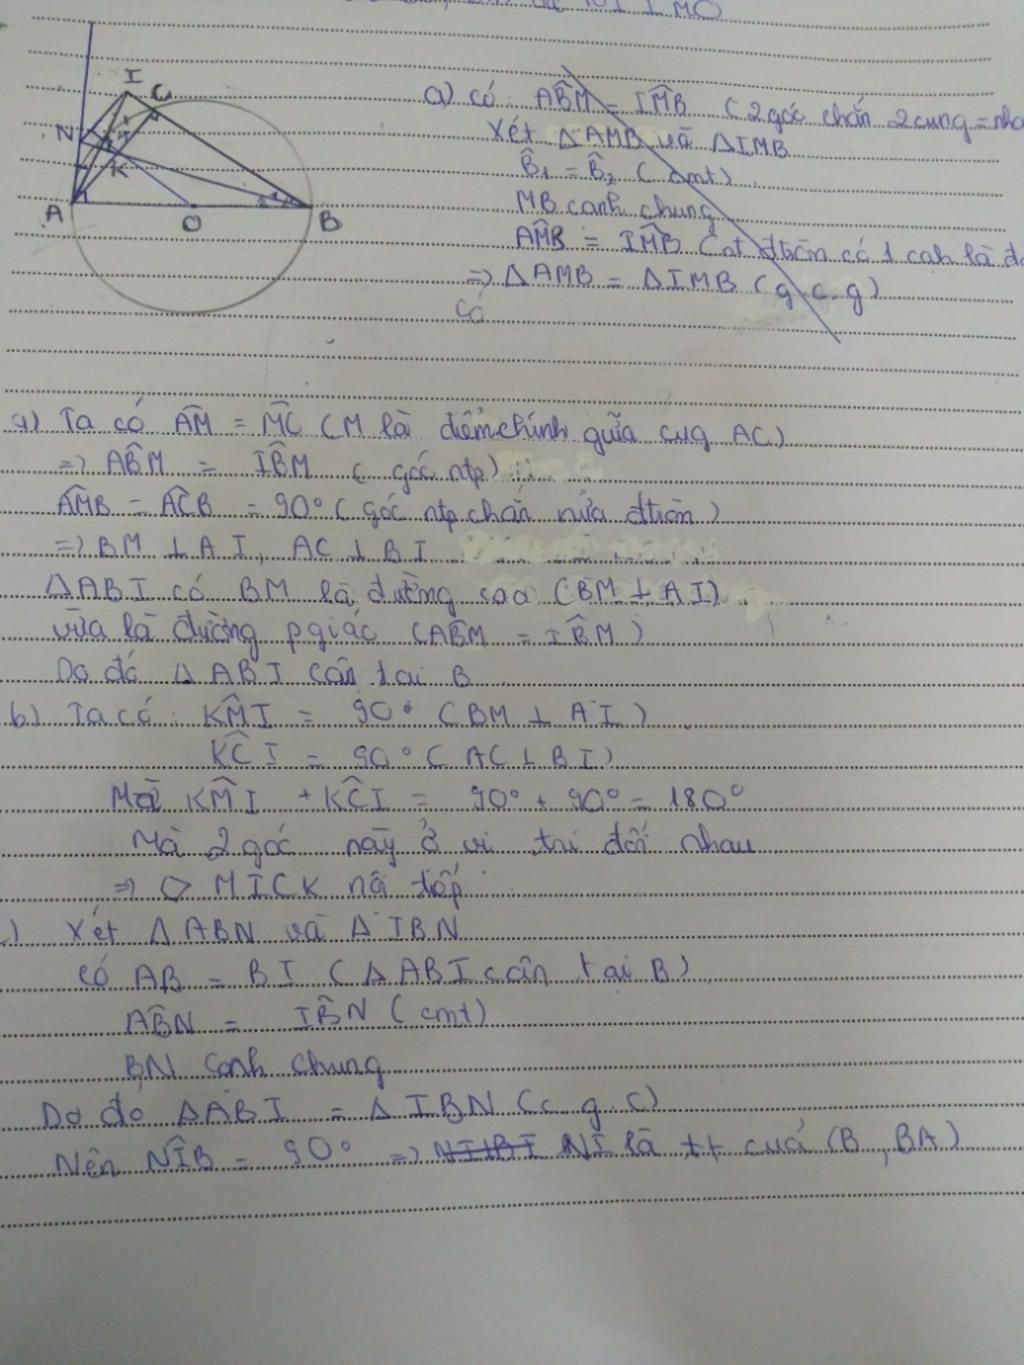 IMO
I
C
N
K
A
O
B
a) có ABM̂ = IMB̂ ( 2 góc chắn 2 cung = nha
Xét △AMB và △IMB
B̂1 = B̂2 ( cmt)
MB cạnh chung
AMB̂ = IMB̂
⇒ △AMB = △IMB ( g.c.g)
Có
a) Ta có AM̂ = MĈ (M là điểm chính giữa cug AC)
⇒ AB̂M = IB̂M ( góc ntp)
AM̂B = AĈB = 90° ( góc ntp chắn nửa đtròn )
⇒ BM ⊥ AI, AC ⊥ BI
△ABI có BM là đường cao (BM ⊥ AI)
vừa là đường pgiác (AB̂M = IB̂M )
Do đó △ABI cân tại B
b) Ta có : KM̂I = 90° ( BM ⊥ AI )
KĈI = 90° ( AC ⊥ BI)
Mà KM̂I + KĈI = 90° + 90° = 180°
Mà 2 góc này ở vị trí đối nhau
⇒ ◇ MICK nội tiếp
) Xét △ABN và △IBN
có AB = BI ( △ABI cân tại B)
AB̂N = IB̂N ( cmt)
BN cạnh chung
Do đó △ABI = △IBN (c.g.c)
Nên NÎB = 90° ⇒ NI là tt cuả (B, BA)